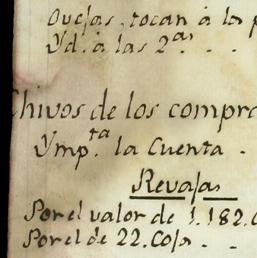 Ovejas, tocan á la p
Yd. á las 2.as . .
Chivos de los compra
Ymp.ta la Cuenta .
Revajas
Por el valor de 1.182. C
Por el de 22. Cojs . .